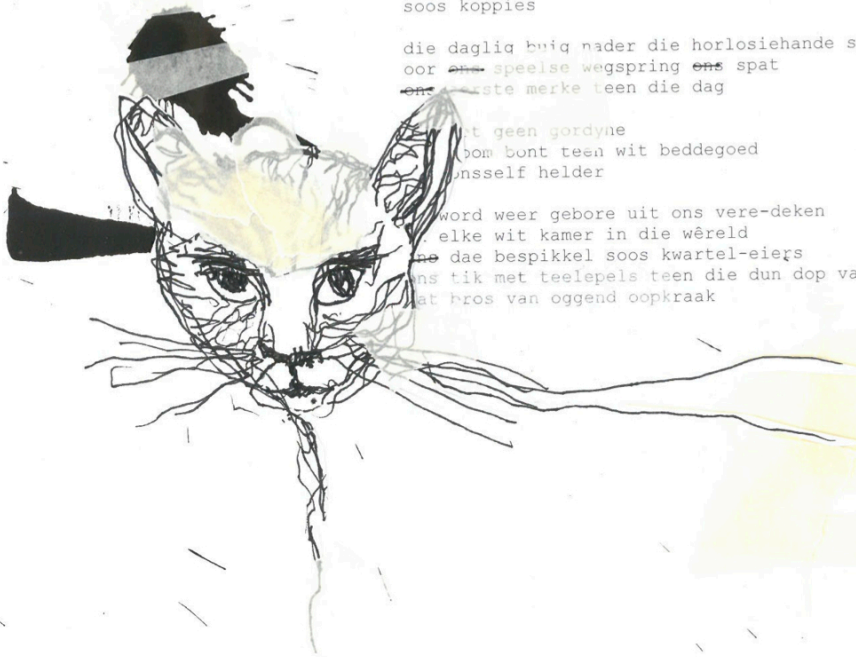 soos koppies
die daglig buig nader die horlosiehande s
oor ons speelse wegspring ons spat
ons eerste merke teen die dag
geen gordyne
bont teen wit beddegoed
onsself helder
word weer gebore uit ons vere-deken
elke wit kamer in die wêreld
dae bespikkel soos kwartel-eiers
ons tik met teelepels teen die dun dop va
bros van oggend oopkraak